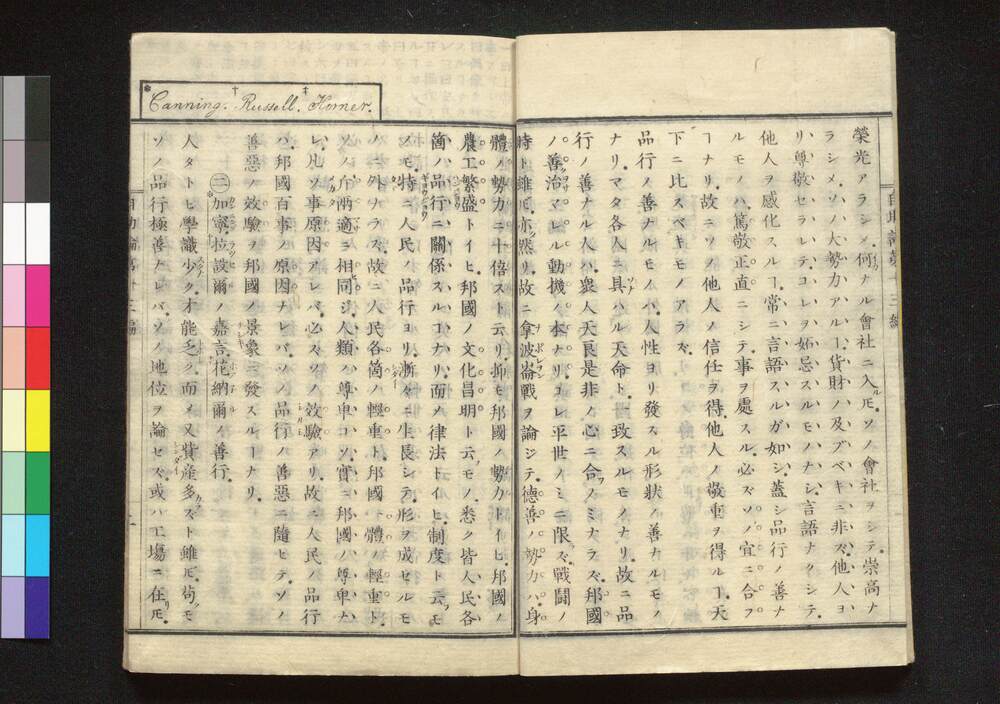 榮光アラシメ、何ナル會社ニ入ルモ、ソノ會社ヲシテ、崇高ナ
ラシメ、ソノ大勢力アルヿ、貨財ノ及ブベキニ非ズ、他人ヨ
リ尊敬セラレテ、コレヲ妬忌スルモノナシ、言語ナクシテ、
他人ヲ感化スルヿ、常ニ言語スルガ如シ、蓋シ品行ノ善ナ
ルモノハ、篤敬正直ニシテ、事ヲ處スル、必ズソノ宜ニ合フ
ヿナリ、故ニソノ他人ノ信任ヲ得、他人ノ敬重ヲ得ルヿ、天
下ニ比スベキモノアラズ、
品行ノ善ナルモノハ、人性ヨリ發スル形狀ノ善ナルモノ
ナリ、マタ各人ニ具ハル天命ト、一致スルモノナリ、故ニ品
行ノ善ナル人ハ、衆人天良是非ノ心ニ合フノミナラズ、邦國
ノ善治マレル動機ノ本ナリ、コレ平世ノミニ限ズ、戰鬪ノ
時ト雖モ、亦然リ、故ニ拿波崙戰ヲ論ジテ、德善ノ勢力ハ、身
體ノ勢力ニ十倍スト云リ、抑モ邦國ノ勢力トイヒ、邦國ノ
農工繁盛トイヒ、邦國ノ文化昌明ト云モノ、悉ク皆人民各
箇ノ品行ニ關係スルヿナリ、面ノ律法トイヒ、制度ト云モ
ノモ、特ニ人民ノ品行ヨリ、漸々ニ生長シテ、形ヲ成セルモ
ノニ外ナラズ、故ニ人民各箇ノ輕重ト、邦國一體ノ輕重ト、
ソノ斤兩適ニ相同ジ、人類ノ尊卑コソ、實ニ邦國ノ尊卑ナ
レ、凡ソ事原因アレバ、必ズソノ效驗アリ、故ニ人民ノ品行
ハ、邦國百事ノ原因ナレバ、ソノ品行ノ善惡ニ隨ヒテ、ソノ
善惡ノ效驗ヲ、邦國ノ景象ニ發スルヿナリ、
㊁加寧、拉設爾ノ嘉言、花納爾ノ善行、
人タトヒ學識少ク、才能乏ク、而メ又貲產多ズト雖モ、苟モ
ソノ品行極善ナレバ、ソノ地位ヲ論ゼズ、或ハ工塲ニ在モ、
* Canning. † Russell. ‡ Horner.